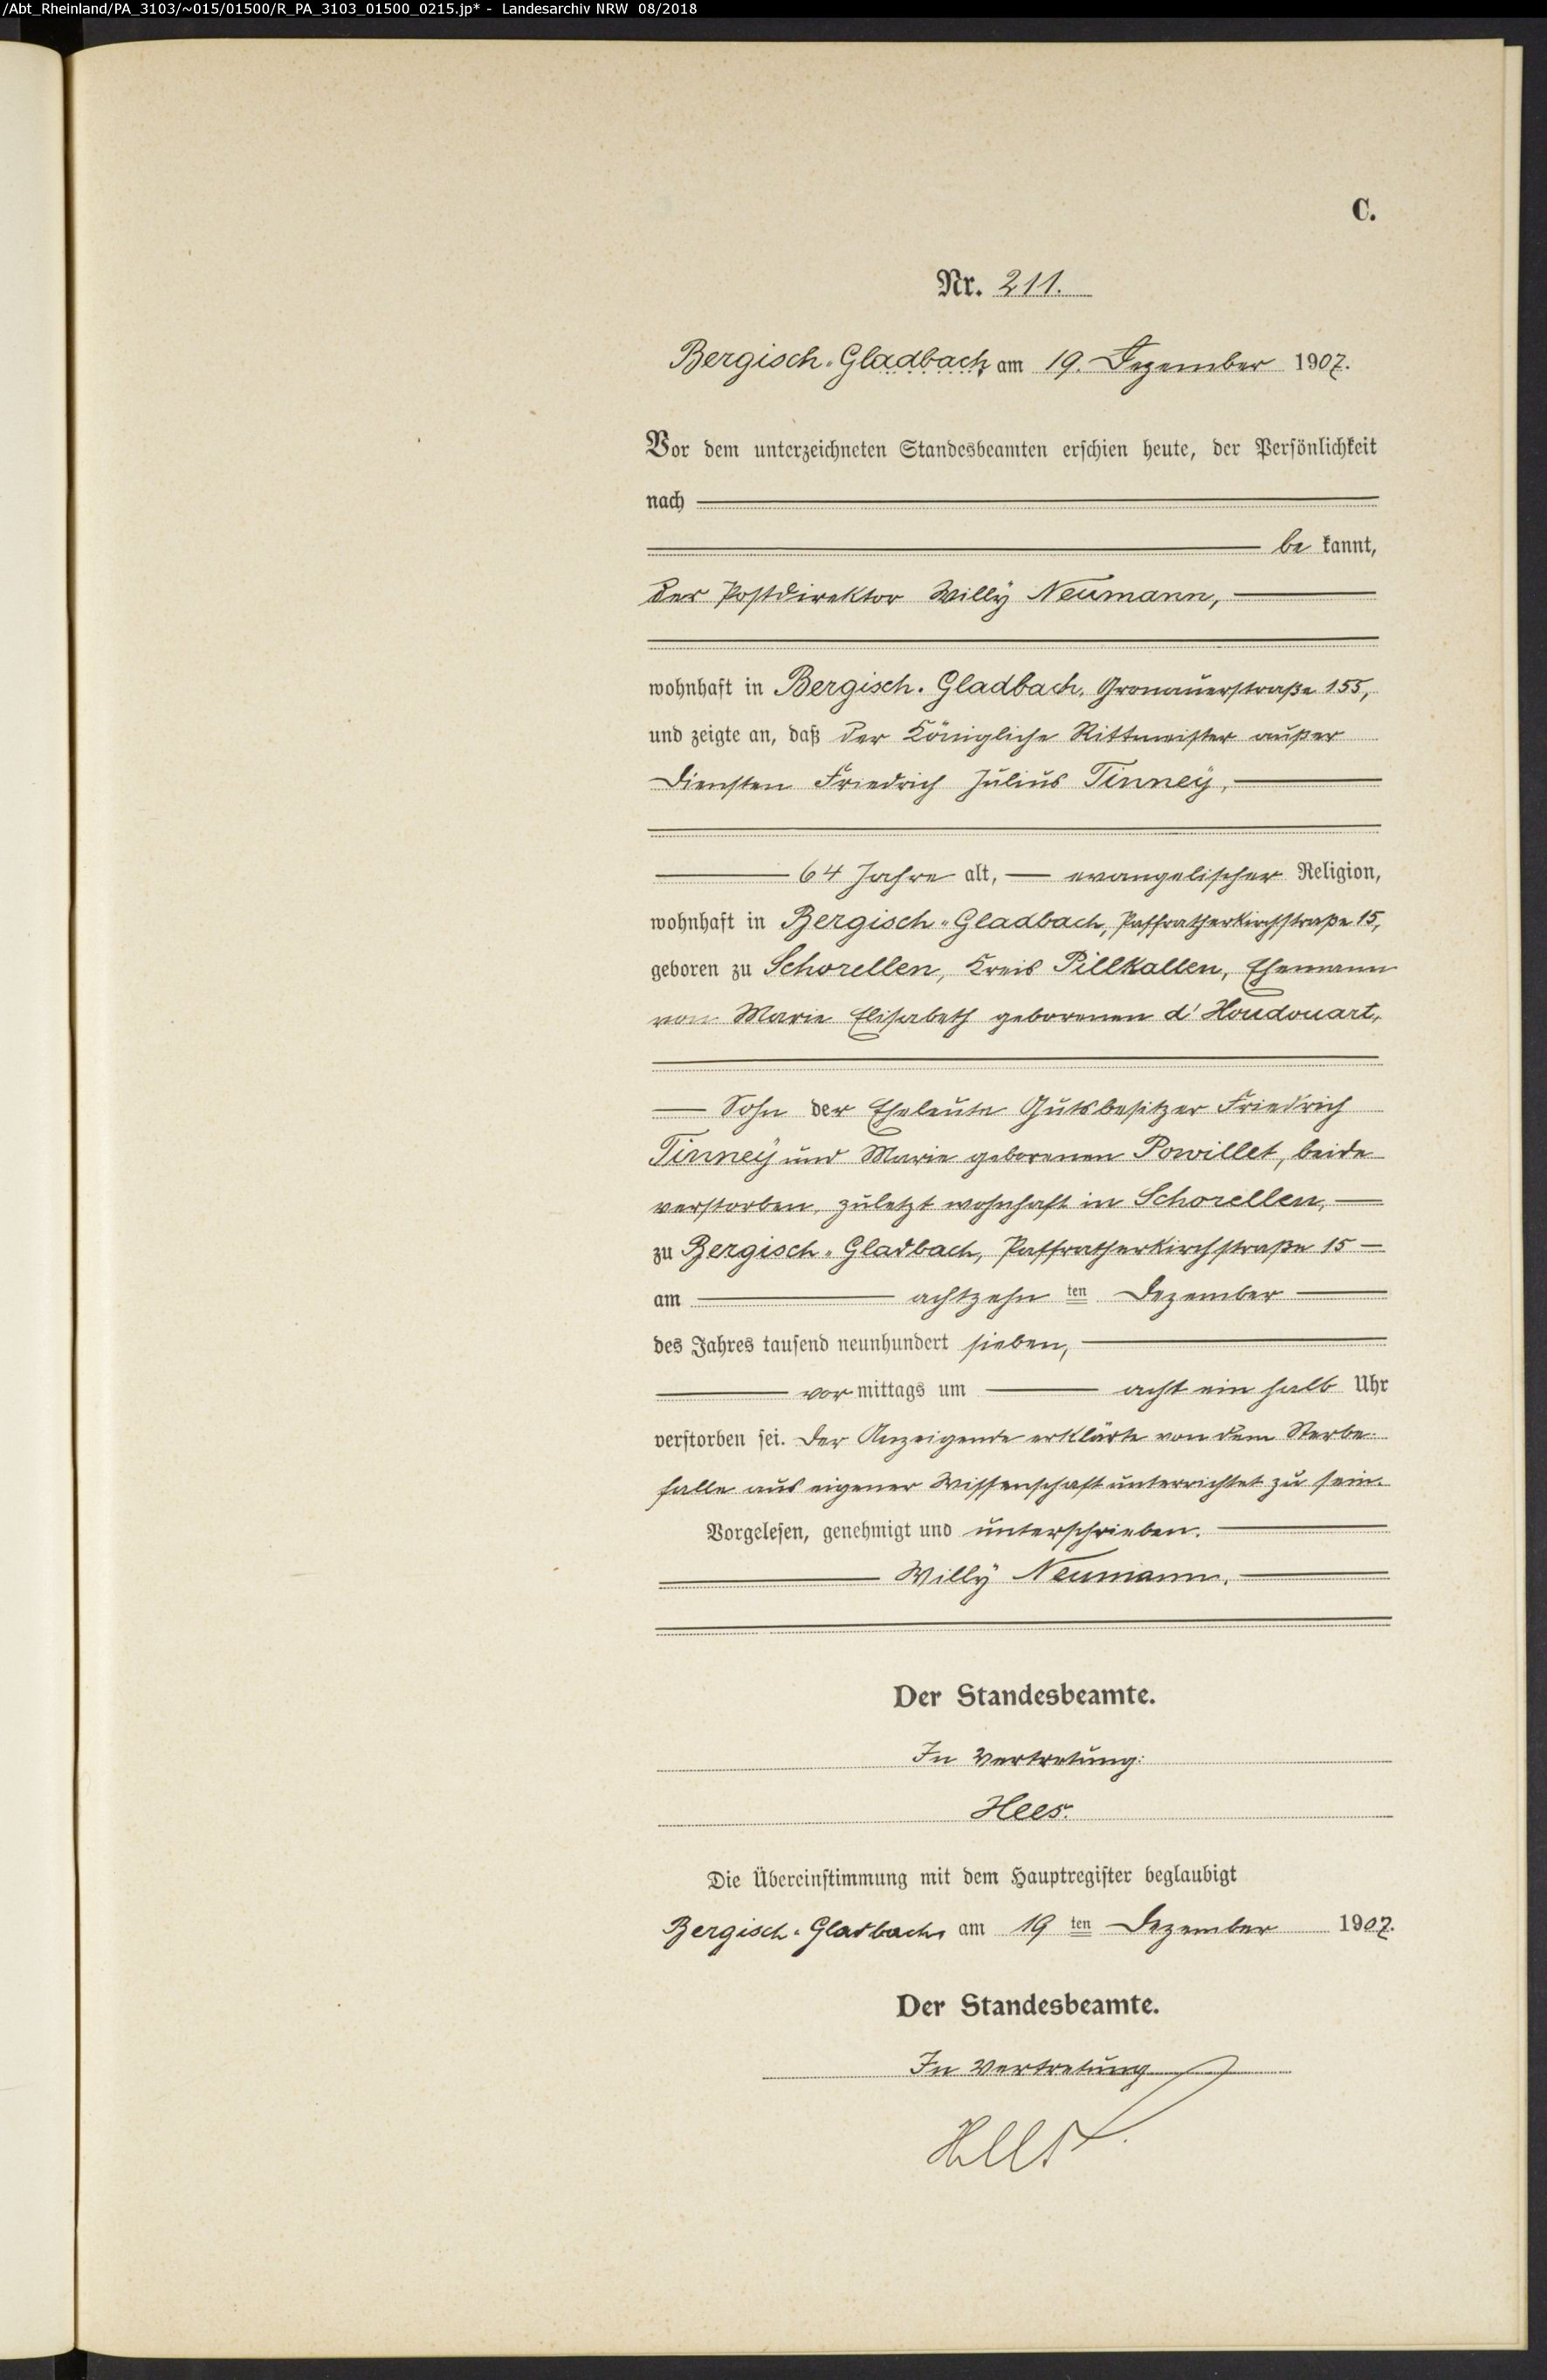 /Abt_Rheinland/PA_3103/~015/01500/R_PA_3103_01500_0215.jp* - Landesarchiv NRW 08/2018
C.
Nr. 211.
Bergisch-Gladbach, am 19. Dezember 1907.
Vor dem unterzeichneten Standesbeamten erschien heute, der Persönlichkeit
nach
be kannt,
der Postdirektor Willy Neumann,
wohnhaft in Bergisch-Gladbach, Gronauerstraße 155,
und zeigte an, daß der Königliche Rittmeister außer
Diensten Friedrich Julius Tinney,
64 Jahre alt, evangelischer Religion,
wohnhaft in Bergisch-Gladbach, Paffratherkirchstraße 15,
geboren zu Schorellen, Kreis Pillkallen, Ehemann
von Marie Elisabeth geborenen d'Houdouart,
Sohn der Eheleute Gutsbesitzer Friedrich
Tinney und Marie geborenen Powillet, beide
verstorben, zuletzt wohnhaft in Schorellen,
zu Bergisch-Gladbach, Paffratherkirchstraße 15
am achtzehn ten Dezember
des Jahres tausend neunhundert sieben,
vor mittags um acht ein halb Uhr
verstorben sei. Der Anzeigende erklärte von dem Sterbe-
falle aus eigener Wissenschaft unterrichtet zu sein.
Vorgelesen, genehmigt und unterschrieben.
Willy Neumann.
Der Standesbeamte.
In Vertretung:
Hees.
Die Übereinstimmung mit dem Hauptregister beglaubigt
Bergisch-Gladbach am 19 ten Dezember 1907.
Der Standesbeamte.
In Vertretung
Hees.